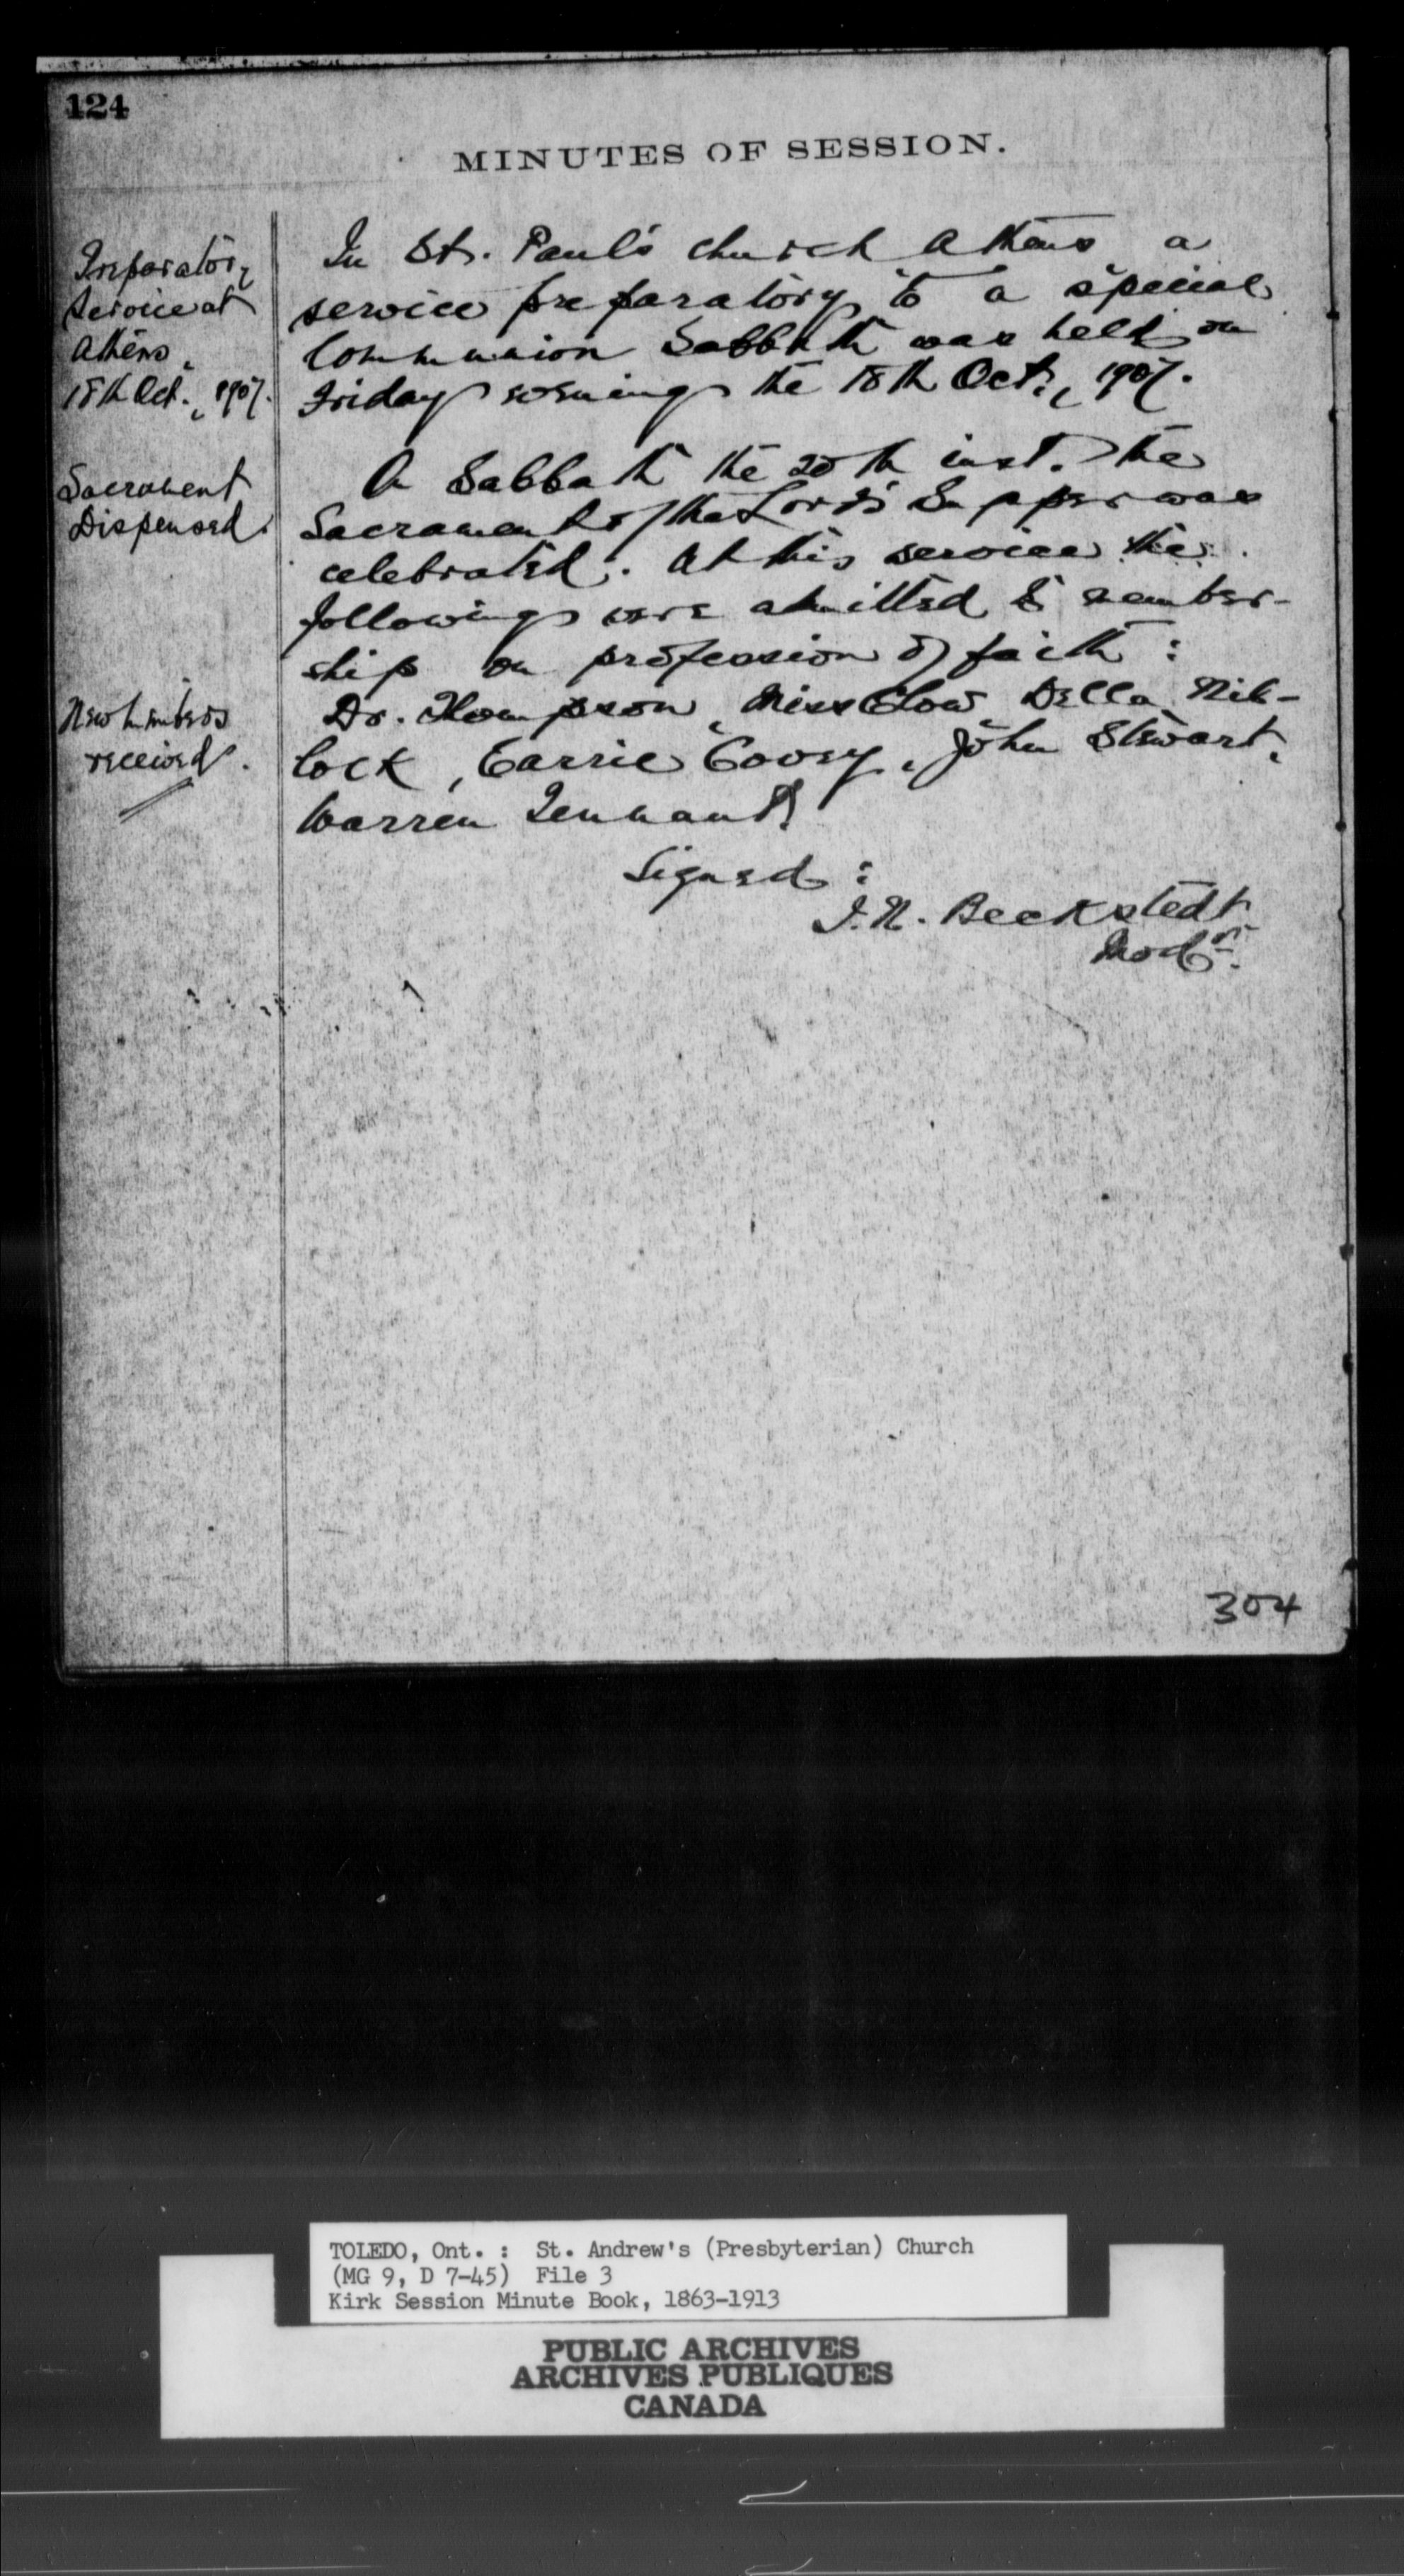 124
MINUTES OF SESSION.
Preparatory
Service at
Athens,
18th Oct., 1907.
In St. Paul's church Athens a
service preparatory to a special
Communion Sabbath was held on
Friday evening the 18th Oct., 1907.
Sacrament
Dispensed.
On Sabbath the 20th inst. the
Sacrament of the Lord's Supper was
celebrated. At this service the
following were admitted to member-
ship on profession of faith:
New members
received.
Dr. Thompson, Miss Clow, Della Nib-
lock, Carrie Covey, John Stewart,
Warren Tennant.
Signed:
I. N. Beckstedt
Modr.
304
TOLEDO, Ont. : St. Andrew's (Presbyterian) Church
(MG 9, D 7-45) File 3
Kirk Session Minute Book, 1863-1913
PUBLIC ARCHIVES
ARCHIVES PUBLIQUES
CANADA